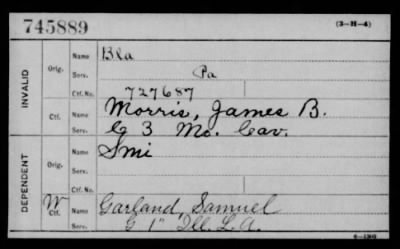 745889
(3-H-4)
INVALID
Orig.
Name
Bla
Serv.
Pa
Ctf. No.
727687
Ctf.
Name
Morris, James B.
Serv.
C 3 Mo. Cav.
DEPENDENT
Orig.
Name
Smi
Serv.
Ctf. No.
W
Ctf.
Name
Garland, Samuel
Serv.
G 1" Ill. L. A.